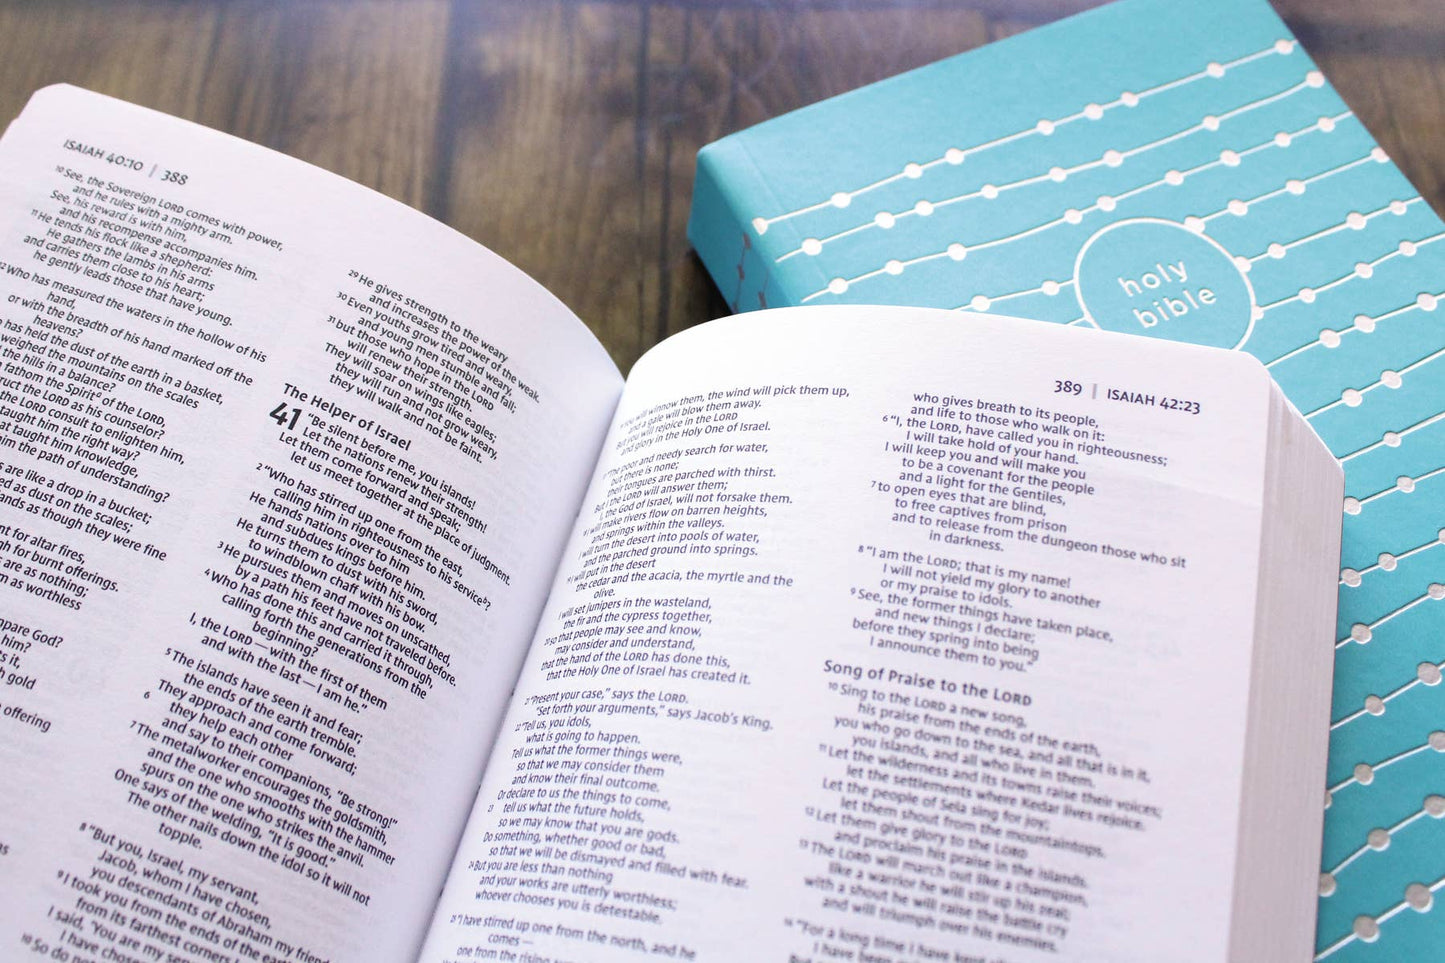 ISAIAH 40:10 | 388
10 See, the Sovereign LORD comes with power,
and he rules with a mighty arm.
See, his reward is with him,
and his recompense accompanies him.
11 He tends his flock like a shepherd:
He gathers the lambs in his arms
and carries them close to his heart;
he gently leads those that have young.
12 Who has measured the waters in the hollow of his
hand,
or with the breadth of his hand marked off the
heavens?
has held the dust of the earth in a basket,
weighed the mountains on the scales
the hills in a balance?
fathom the Spirit of the LORD,
the LORD as his counselor?
the LORD consult to enlighten him,
taught him the right way?
that taught him knowledge,
him the path of understanding?
are like a drop in a bucket;
as dust on the scales;
as though they were fine
for altar fires,
for burnt offerings.
are as nothing;
as worthless
God?
him?
it,
gold
offering
29 He gives strength to the weary
and increases the power of the weak.
30 Even youths grow tired and weary,
and young men stumble and fall;
31 but those who hope in the LORD
will renew their strength.
They will soar on wings like eagles;
they will run and not grow weary,
they will walk and not be faint.
The Helper of Israel
41 "Be silent before me, you islands!
Let the nations renew their strength!
Let them come forward and speak;
let us meet together at the place of judgment.
2 "Who has stirred up one from the east,
calling him in righteousness to his service?
He hands nations over to him
and subdues kings before him.
He turns them to dust with his sword,
to windblown chaff with his bow.
3 He pursues them and moves on unscathed,
by a path his feet have not traveled before.
4 Who has done this and carried it through,
calling forth the generations from the
beginning?
I, the LORD — with the first of them
and with the last — I am he."
5 The islands have seen it and fear;
the ends of the earth tremble.
They approach and come forward;
6 they help each other
and say to their companions, "Be strong!"
7 The metalworker encourages the goldsmith,
and the one who smooths with the hammer
spurs on the one who strikes the anvil.
One says of the welding, "It is good."
The other nails down the idol so it will not
topple.
8 "But you, Israel, my servant,
Jacob, whom I have chosen,
you descendants of Abraham my friend,
9 I took you from the ends of the earth,
from its farthest corners I
I said, 'You are my
I have chosen
10 So do not
389 | ISAIAH 42:23
will winnow them, the wind will pick them up,
and a gale will blow them away.
But you will rejoice in the LORD
and glory in the Holy One of Israel.
"The poor and needy search for water,
but there is none;
their tongues are parched with thirst.
But I the LORD will answer them;
I, the God of Israel, will not forsake them.
I will make rivers flow on barren heights,
and springs within the valleys.
I will turn the desert into pools of water,
and the parched ground into springs.
I will put in the desert
the cedar and the acacia, the myrtle and the
olive.
I will set junipers in the wasteland,
the fir and the cypress together,
20 so that people may see and know,
may consider and understand,
that the hand of the LORD has done this,
that the Holy One of Israel has created it.
21 "Present your case," says the LORD.
"Set forth your arguments," says Jacob's King.
22 "Tell us, you idols,
what is going to happen.
Tell us what the former things were,
so that we may consider them
and know their final outcome.
Or declare to us the things to come,
23 tell us what the future holds,
so we may know that you are gods.
Do something, whether good or bad,
so that we will be dismayed and filled with fear.
24 But you are less than nothing
and your works are utterly worthless;
whoever chooses you is detestable.
25 "I have stirred up one from the north, and he
comes —
one from the rising
who gives breath to its people,
and life to those who walk on it:
6 "I, the LORD, have called you in righteousness;
I will take hold of your hand.
I will keep you and will make you
to be a covenant for the people
and a light for the Gentiles,
7 to open eyes that are blind,
to free captives from prison
and to release from the dungeon those who sit
in darkness.
8 "I am the LORD; that is my name!
I will not yield my glory to another
or my praise to idols.
9 See, the former things have taken place,
and new things I declare;
before they spring into being
I announce them to you."
Song of Praise to the LORD
10 Sing to the LORD a new song,
his praise from the ends of the earth,
you who go down to the sea, and all that is in it,
you islands, and all who live in them.
11 Let the wilderness and its towns raise their voices;
let the settlements where Kedar lives rejoice.
Let the people of Sela sing for joy;
let them shout from the mountaintops.
12 Let them give glory to the LORD
and proclaim his praise in the islands.
13 The LORD will march out like a champion,
like a warrior he will stir up his zeal;
with a shout he will raise the battle cry
and will triumph over his enemies.
14 "For a long time I have kept
I have been
holy
bible